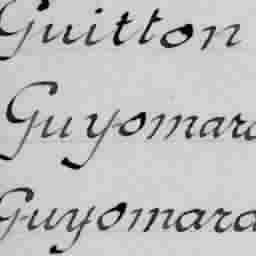 Guitton
Guyomard
Guyomard